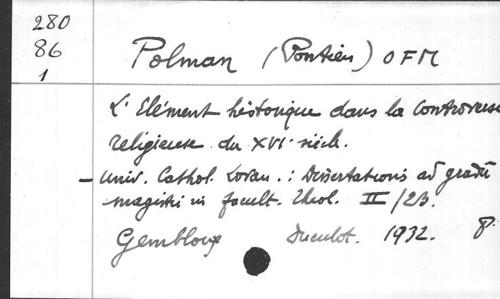 280
86
1
Polman (Pontien) OFM
L'Elément historique dans la controverse
religieuse du XVIe siècle.
- Univ. Cathol. Lovan. : Dissertationes ad gradū
magistri in facult. Theol. II/23.
Gembloux Duculot. 1932. 8°